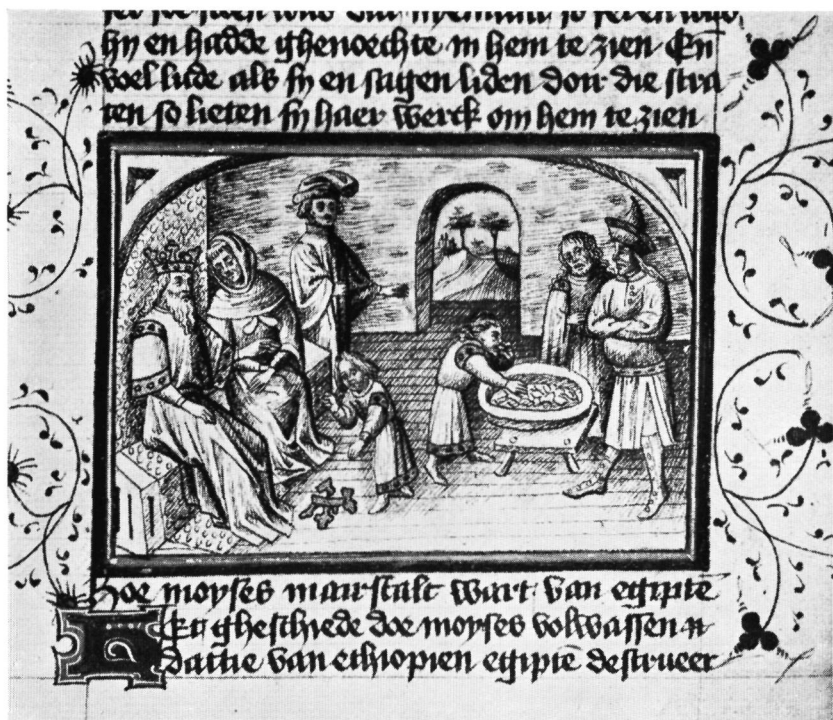 hy en hadde ghenoechte in hem te zien En
voel lude als sy en sagen liden doir die stra
ten so lieten sy haer werck om hem te zien
hoe moyses mairscalc wart van egipte
Et gheschiede doe moyses volwassen
dattie van ethiopien egipte destrueer